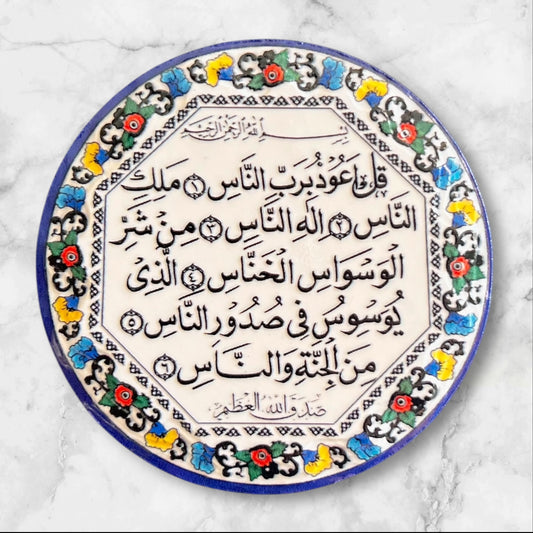 بسم الله الرحمن الرحيم
قل اعوذ برب الناس ١ ملك
الناس ٢ اله الناس ٣ من شر
الوسواس الخناس ٤ الذي
يوسوس في صدور الناس ٥
من الجنة والناس ٦
صدق الله العظيم